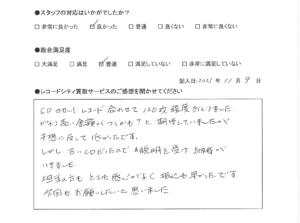 ●スタッフの対応はいかがでしたか？
□ 非常に良かった ☑ 良かった □ 普通 □ 良くない □ 非常に良くない
●総合満足度
□ 大満足 □ 満足 ☑ 普通 □ 満足していない □ 非常に満足していない
記入日:2021年11月9日
●レコードシティ買取サービスのご感想を聞かせてください
CD レコード 合わせて 120枚程度でした
高い金額がつくかも？と期待していましたが
予想に反して低かったです。
しかし 古いCDだったので 説明を受け 納得が
いきました。
担当の方も とても感じがよく 振込も早かったです
次回も お願いしたいと思いました